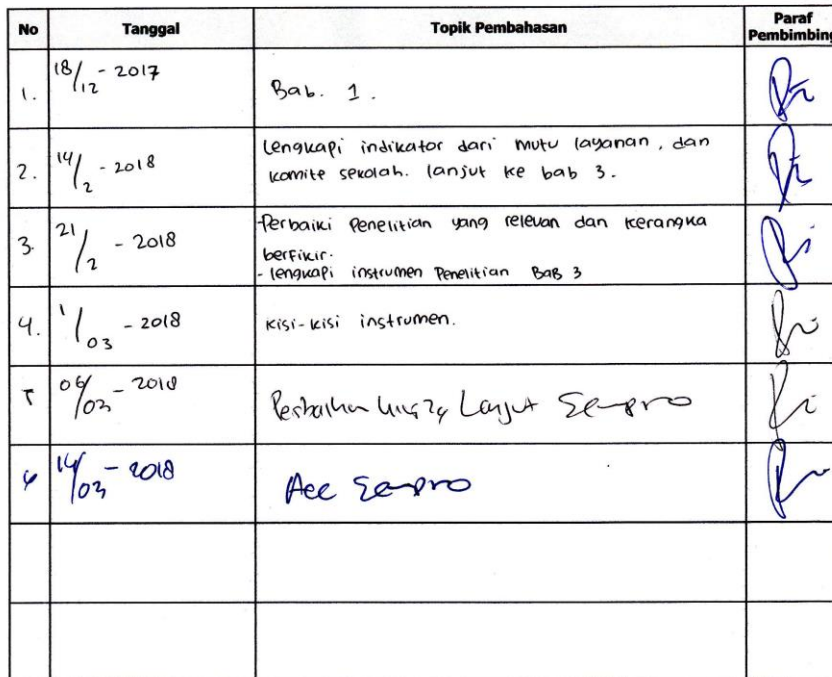 No Tanggal Topik Pembahasan Paraf
Pembimbing
1. 18/12 - 2017 Bab. 1.
2. 14/2 - 2018 Lengkapi indikator dari mutu layanan, dan
komite sekolah. lanjut ke bab 3.
3. 21/2 - 2018 -Perbaiki Penelitian yang relevan dan kerangka
berfikir.
- lengkapi instrumen Penelitian BaB 3
4. 1/03 - 2018 kisi-kisi instrumen.
5 06/03 - 2018 Lanjut Sempro
6 14/03 - 2018 Acc Sempro